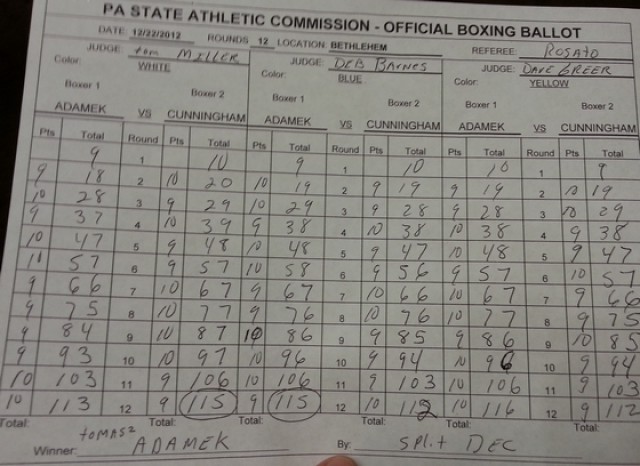 PA STATE ATHLETIC COMMISSION - OFFICIAL BOXING BALLOT
DATE: 12/22/2012 ROUNDS 12 LOCATION: BETHLEHEM REFEREE: ROSATO
JUDGE: tom MILLER JUDGE: DEB BARNES JUDGE: DAVE GREER
Color: WHITE Color: BLUE Color: YELLOW
Boxer 1 Boxer 2 Boxer 1 Boxer 2 Boxer 1 Boxer 2
ADAMEK VS CUNNINGHAM ADAMEK VS CUNNINGHAM ADAMEK VS CUNNINGHAM
Pts Total Round Pts Total Pts Total Round Pts Total Pts Total Round Pts Total
9 1 10 9 1 10 10 1 9
9 18 2 10 20 10 19 2 9 19 9 19 2 10 19
10 28 3 9 29 10 29 3 9 28 9 28 3 10 29
9 37 4 10 39 9 38 4 10 38 10 38 4 9 38
10 47 5 9 48 10 48 5 9 47 10 48 5 9 47
10 57 6 9 57 10 58 6 9 56 9 57 6 10 57
9 66 7 10 67 9 67 7 10 66 10 67 7 9 66
9 75 8 10 77 9 76 8 10 76 10 77 8 9 75
9 84 9 10 87 10 86 9 9 85 9 86 9 10 85
9 93 10 10 97 10 96 10 9 94 10 96 10 9 94
10 103 11 9 106 10 106 11 9 103 10 106 11 9 103
10 113 12 9 115 9 115 12 10 112 10 116 12 9 112
Total: Total: Total: Total: Total: Total:
Winner: tomasz ADAMEK By: Split DEC